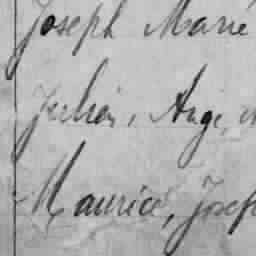 Joseph Marie
Julien, Ange,
Maurice, Josep